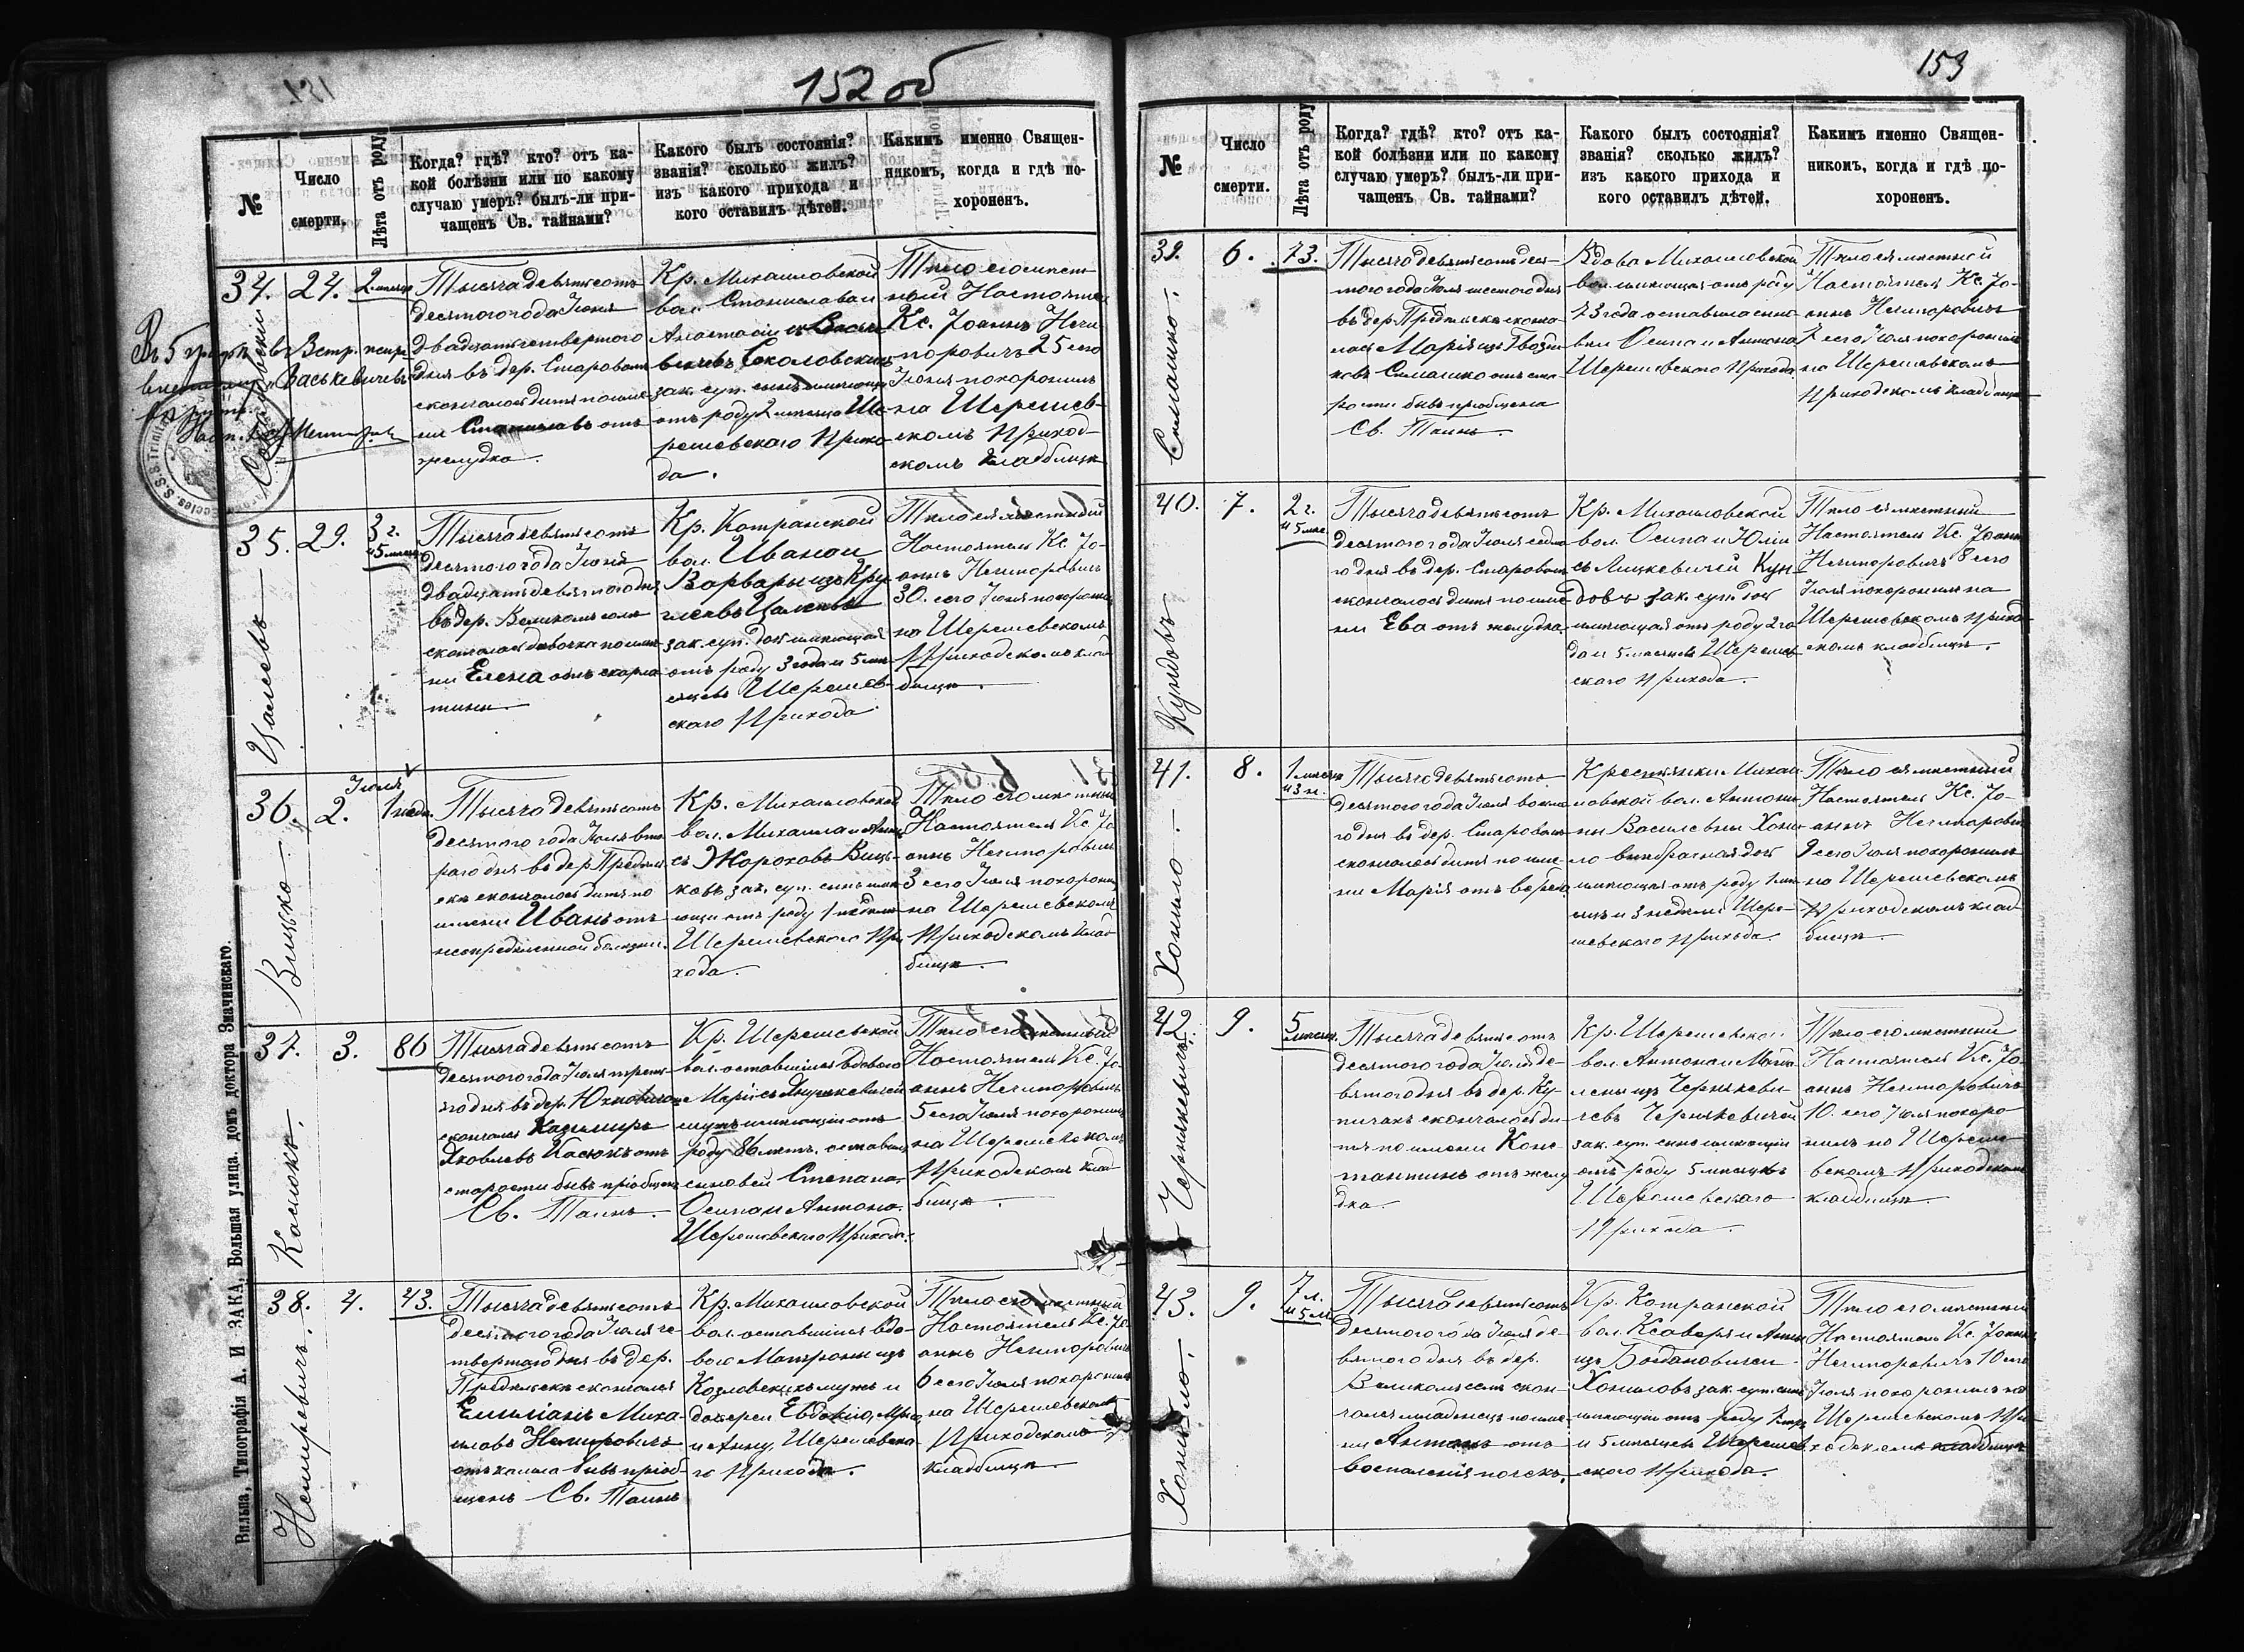 152 об
№
Число
смерти.
Лѣта отъ роду
Когда? гдѣ? кто? отъ ка-
кой болѣзни или по какому
случаю умеръ? былъ-ли при-
чащенъ Св. тайнами?
Какого былъ состоянія?
званія? сколько жилъ?
изъ какого прихода и
кого оставилъ дѣтей.
Какимъ именно Священ-
никомъ, когда и гдѣ по-
хороненъ.
34.
24.
2 мѣсяца
Тысяча девятьсотъ
десятого года Іюня
двадцать четвертого
дня въ дер. Старовол
скончалось дитя по име-
ни Станиславъ отъ
желудка.
Кр. Михаиловской
вол. Станислава и
Анастасіи
Соколовскихъ
зак. суп. сынъ имѣющій
отъ роду 2 мѣсяца Ше-
решевского Прихо-
да.
Тѣло его мѣст-
ный Настоятель
Кс. Іоаннъ Нечи-
поровичъ 25 сего
Іюня похоронилъ
на Шерешев-
скомъ приход-
скомъ кладбищѣ
35.
29.
3 г.
и 5 мѣсяц
Цалевъ
Тысяча девятьсотъ
десятого года Іюня
двадцать девятого дня
въ дер. Великомъ селѣ
скончалась дѣвочка по име-
ни Елена отъ скарла-
тины.
Кр. Котранской
вол. Ивана и
Варвары изъ
зак. суп. дочь имѣющая
отъ роду 3 года и 5 мѣ-
сяцевъ Шерешев-
скаго Прихода
Тѣло ея мѣстный
Настоятель Кс. Іо-
аннъ Нечипоровичъ
30. сего Іюня похоронилъ
на Шерешевскомъ
Приходскомъ клад-
бищѣ.
36.
Іюля
2.
1 нед.
Вицько
Тысяча девятьсотъ
десятого года Іюля вто-
рого дня въ дер. Предѣль-
скѣ скончалось дитя по
имени Иванъ отъ
неопредѣленной болѣзни.
Кр. Михаиловской
вол. Михаила и Анны
съ Жороховъ Виць-
ковъ зак. суп. сынъ имѣ-
ющій отъ роду 1 недѣлю
Шерешевского При-
хода.
Тѣло его мѣстный
Настоятель Кс. Іо-
аннъ Нечипоровичъ
3 сего Іюля похоронилъ
на Шерешевскомъ
Приходскомъ клад-
бищѣ.
37.
3.
86
Касюкъ.
Тысяча девятьсотъ
десятого года Іюля треть-
яго дня въ дер. Юхновичахъ
скончался Казимиръ
Яковлевъ Касюкъ отъ
старости бывъ пріобщенъ
Св. Таинъ.
Кр. Шерешевской
вол. оставшійся вдовою
Маріи съ Янушкевичей
мужъ имѣющій отъ
роду 86 лѣтъ. оставилъ
сыновей Степана
Осипа и Антона.
Шерешевского Прихода.
Тѣло его мѣстный
Настоятель Кс. Іо-
аннъ Нечипоровичъ
5 сего Іюля похоронилъ
на Шерешевскомъ
Приходскомъ клад-
бищѣ.
38.
4.
43.
Нечипровичъ.
Тысяча девятьсотъ
десятого года Іюля че-
твертаго дня въ дер.
Предѣльскѣ скончался
Емиліанъ Миха-
иловъ
отъ кашля бывъ пріоб-
щенъ Св. Таинъ
Кр. Михаиловской
вол. оставшійся вдо-
вою Матроны изъ
Козловскихъ мужъ и
дочерей Евдокію,
и Анну, Шерешевска-
го Прихода.
Тѣло его мѣстный
Настоятель Кс. Іо-
аннъ Нечипоровичъ
6 сего Іюля похоронилъ
на Шерешевскомъ
Приходскомъ
кладбищѣ.
Вильна, Типографія А. И ЗАКА, Большая улица. домъ доктора Значинскаго.
153
№
Число
смерти.
Лѣта отъ роду
Когда? гдѣ? кто? отъ ка-
кой болѣзни или по какому
случаю умеръ? былъ-ли при-
чащенъ Св. тайнами?
Какого былъ состоянія?
званія? сколько жилъ?
изъ какого прихода и
кого оставилъ дѣтей.
Какимъ именно Священ-
никомъ, когда и гдѣ по-
хороненъ.
39.
6.
73.
Симашко.
Тысяча девятьсотъ деся-
того года Іюля шестого дня
въ дер. Предѣльскѣ сконча-
лась Марія изъ Гвозди-
ковъ Симашко отъ ста-
рости бывъ пріобщена
Св. Таинъ.
Вдова Михаиловской
вол. имѣющая отъ роду
73 года оставила сыно-
вей Осипа и Антона
Шерешевского Прихода.
Тѣло ея мѣстный
Настоятель Кс. Іо-
аннъ Нечипоровичъ
7 сего Іюля похоронилъ
на Шерешевскомъ
Приходскомъ кладбищѣ
40.
7.
2 г.
и 5 мѣс
Кундовъ
Тысяча девятьсотъ
десятого года Іюля седьмо-
го дня въ дер. Староволѣ
скончалось дитя по име-
ни Ева отъ желудка.
Кр. Михаиловской
вол. Осипа и Юліи
съ Лицкевичей Кун-
довъ зак. суп. дочь
имѣющая отъ роду 2 го-
да и 5 мѣсяцевъ Шерешев-
ского Прихода.
Тѣло ея мѣстный
Настоятель Кс. Іоаннъ
Нечипоровичъ 8 сего
Іюля похоронилъ на
Шерешевскомъ Приход-
скомъ кладбищѣ.
41.
8.
1 мѣсяц
и 3 н.
Хонило
Тысяча девятьсотъ
десятого года Іюля восьмо-
го дня въ дер. Староволѣ
скончалось дитя по име-
ни Марія отъ
Крестьянки Михаи-
ловской вол. Антони-
ны Василевны Хони-
ло внѣбрачная дочь
имѣющая отъ роду 1 мѣ-
сяцъ и 3 недѣли Шере-
шевского Прихода.
Тѣло ея мѣстный
Настоятель Кс. Іо-
аннъ Нечипоровичъ
9 сего Іюля похоронилъ
на Шерешевскомъ
Приходскомъ клад-
бищѣ.
42.
9.
5 мѣсяц.
Чернякевичъ.
Тысяча девятьсотъ
десятого года Іюля де-
вятого дня въ дер. Ку-
пичахъ скончалось ди-
тя по имени Конс-
тантинъ отъ желу-
дка.
Кр. Шерешевской
вол. Антона и Магда-
лены изъ Чернякеви-
чевъ Чернякевичей
зак. суп. сынъ имѣющій
отъ роду 5 мѣсяцевъ
Шерешевскаго
Прихода.
Тѣло его мѣстный
Настоятель Кс. Іо-
аннъ Нечипоровичъ
10. сего Іюля похоро-
нилъ на Шереше-
вскомъ Приходскомъ
кладбищѣ.
43.
9.
7 л.
и 5 мѣ
Хонило.
Тысяча девятьсотъ
десятого года Іюля де-
вятого дня въ дер.
Великомъ селѣ скон-
чался младенецъ по име-
ни Антонъ отъ
воспаленія почекъ.
Кр. Котранской
вол. Ксаверія и Анны
изъ Богдановичей
Хониловъ зак. суп. сынъ
имѣющій отъ роду 7 лѣтъ
и 5 мѣсяцевъ Шерешев-
ского Прихода.
Тѣло его мѣстный
Настоятель Кс. Іоаннъ
Нечипоровичъ 10 сего
Іюля похоронилъ на
Шерешевскомъ При-
ходскомъ кладбищѣ